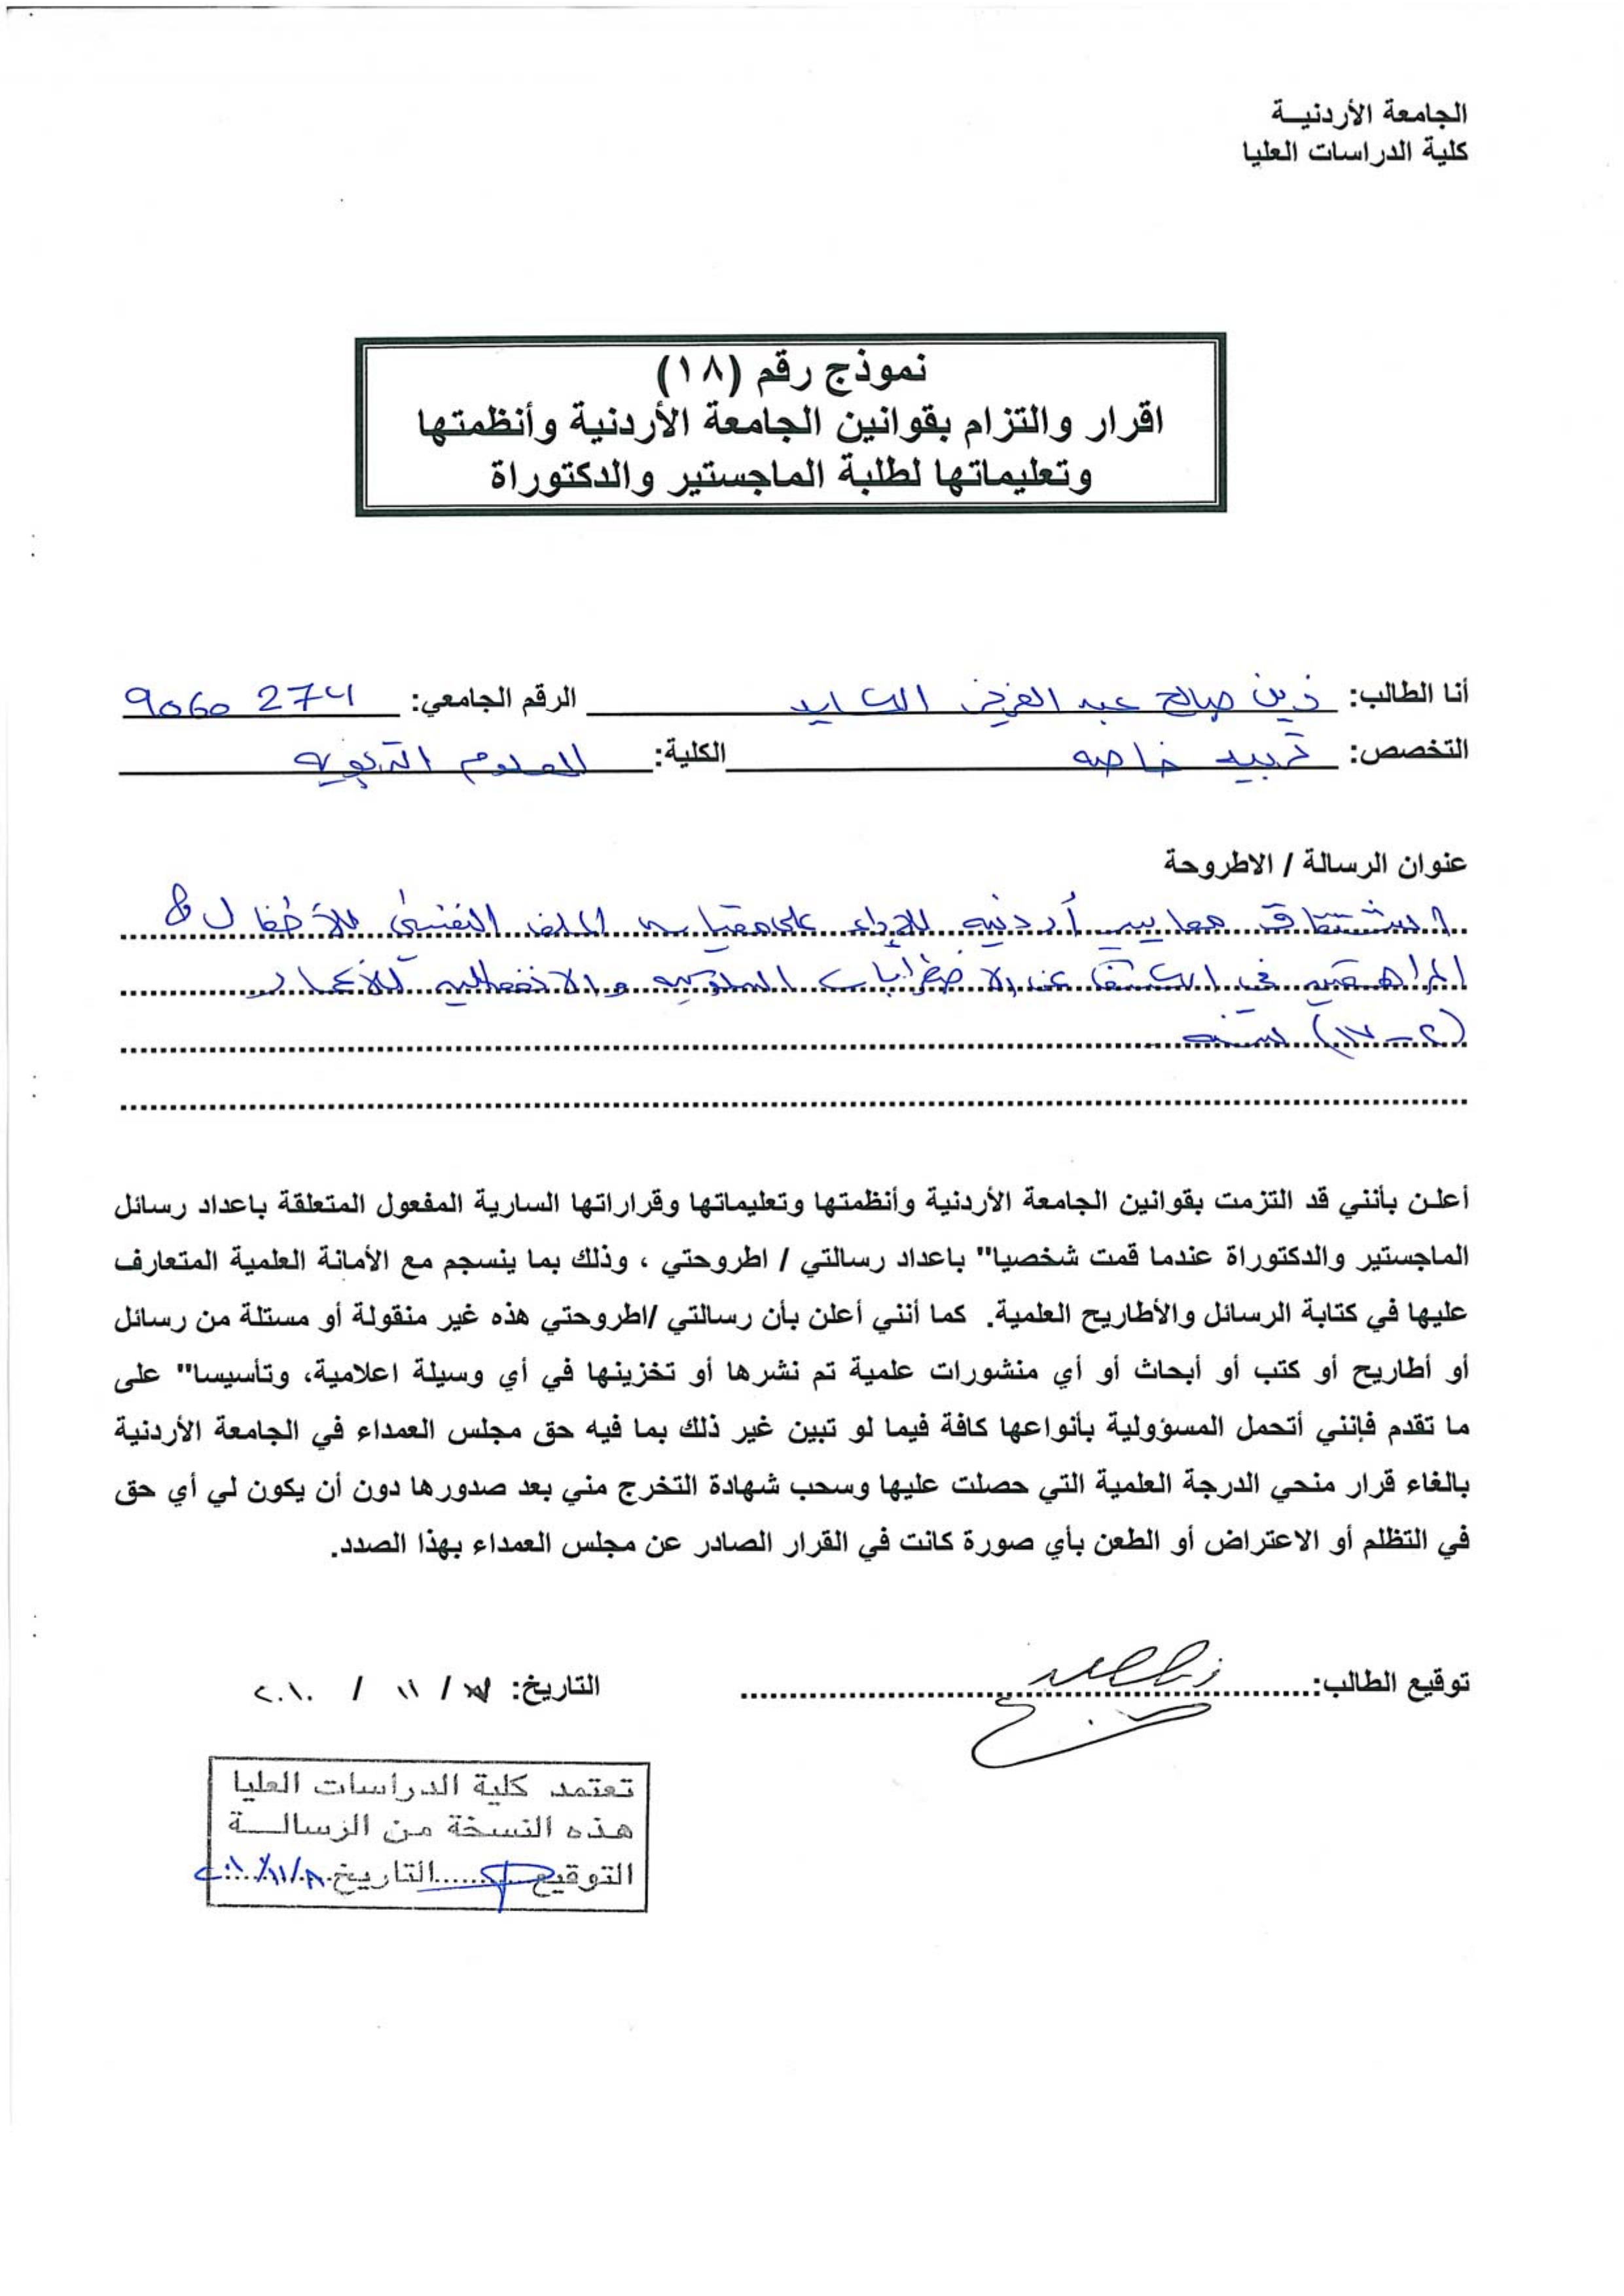 الجامعة الأردنيـــة
كلية الدراسات العليا
نموذج رقم (١٨)
اقرار والتزام بقوانين الجامعة الأردنية وأنظمتها
وتعليماتها لطلبة الماجستير والدكتوراة
أنا الطالب: زين صالح عبد العزيز الرقم الجامعي: 9060274
التخصص: تربيه خاصه الكلية: العلوم التربويه
عنوان الرسالة / الاطروحة
اشتقاق معايير أردنيه للاداء على مقياس الملف النفسي للأطفال و
المراهقين في الكشف عن الاضطرابات السلوكيه والانفعاليه للأعمار
(٢-١٧) سنه
أعلن بأنني قد التزمت بقوانين الجامعة الأردنية وأنظمتها وتعليماتها وقراراتها السارية المفعول المتعلقة باعداد رسائل
الماجستير والدكتوراة عندما قمت شخصيا" باعداد رسالتي / اطروحتي ، وذلك بما ينسجم مع الأمانة العلمية المتعارف
عليها في كتابة الرسائل والأطاريح العلمية. كما أنني أعلن بأن رسالتي /اطروحتي هذه غير منقولة أو مستلة من رسائل
أو أطاريح أو كتب أو أبحاث أو أي منشورات علمية تم نشرها أو تخزينها في أي وسيلة اعلامية، وتأسيسا" على
ما تقدم فإنني أتحمل المسؤولية بأنواعها كافة فيما لو تبين غير ذلك بما فيه حق مجلس العمداء في الجامعة الأردنية
بالغاء قرار منحي الدرجة العلمية التي حصلت عليها وسحب شهادة التخرج مني بعد صدورها دون أن يكون لي أي حق
في التظلم أو الاعتراض أو الطعن بأي صورة كانت في القرار الصادر عن مجلس العمداء بهذا الصدد.
توقيع الطالب: التاريخ: / ١١ / ٢٠١٠
تعتمد كلية الدراسات العليا
هذه النسخة من الرسالـــة
التوقيع التاريخ